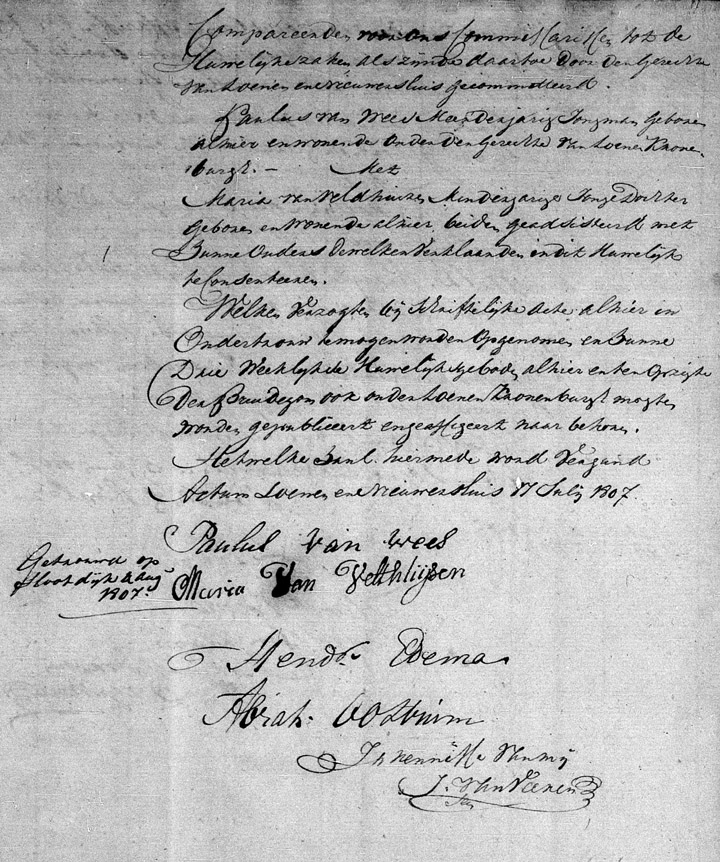 Compareerden voor ons Commissarissen tot de
Huwelijkszaken als zijnde daartoe door den Gerechte
van Loenen en Nieuwersluis gecommitteerd.
Paulus van Wees Meerderjarig Jongman Geboren
alhier en wonende onder den Gerechte van Loenen Krone
burgt. – Met
Maria van Veldhuizen Minderjarige Jonge Dochter
geboren en wonende alhier beiden geadsisteerd met
hunne Ouders dewelken verklaarden in dit Huwelijk
te Consenteeren.
Welken verzogten bij Schriftelijke Acte alhier in
Ondertrouw te mogen worden Opgenomen en hunne
Drie Weeklijksche Huwelijksgeboden alhier en ten Opzigte
Den Bruidegom ook onder Loenen Kronenburgt mogten
worden gepubliceert en geaffigeert naar behoren.
Hetwelke hanl. hiermede word Vergund
Actum Loenen en Nieuwersluis 17 Julij 1807
Paulus van wees
Getrouwd op
Slootdijk Aug
1807.
Maria Van Velthuijsen
Hendk Edema
Abrah. Oostrum
In kennisse van mij
J. Van Veenen